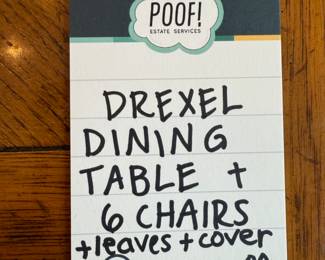 POOF!
ESTATE SERVICES
DREXEL
DINING
TABLE +
6 CHAIRS
+leaves + cover